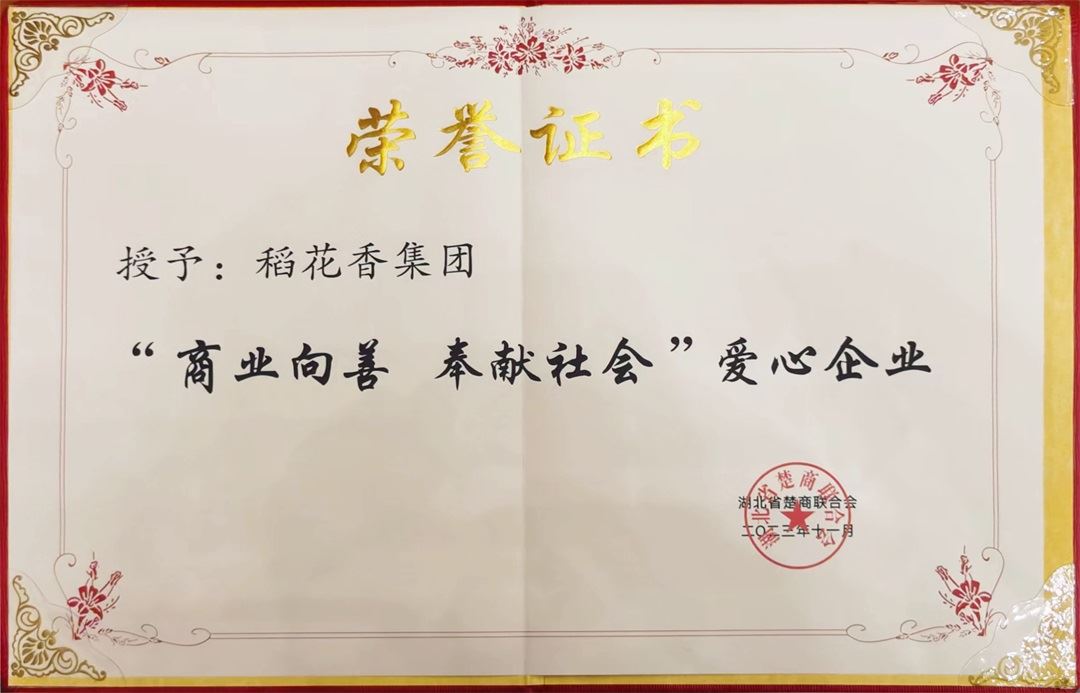 荣誉证书
授予：稻花香集团
“商业向善 奉献社会”爱心企业
湖北省楚商联合会
二〇二三年十一月
湖北省楚商联合会